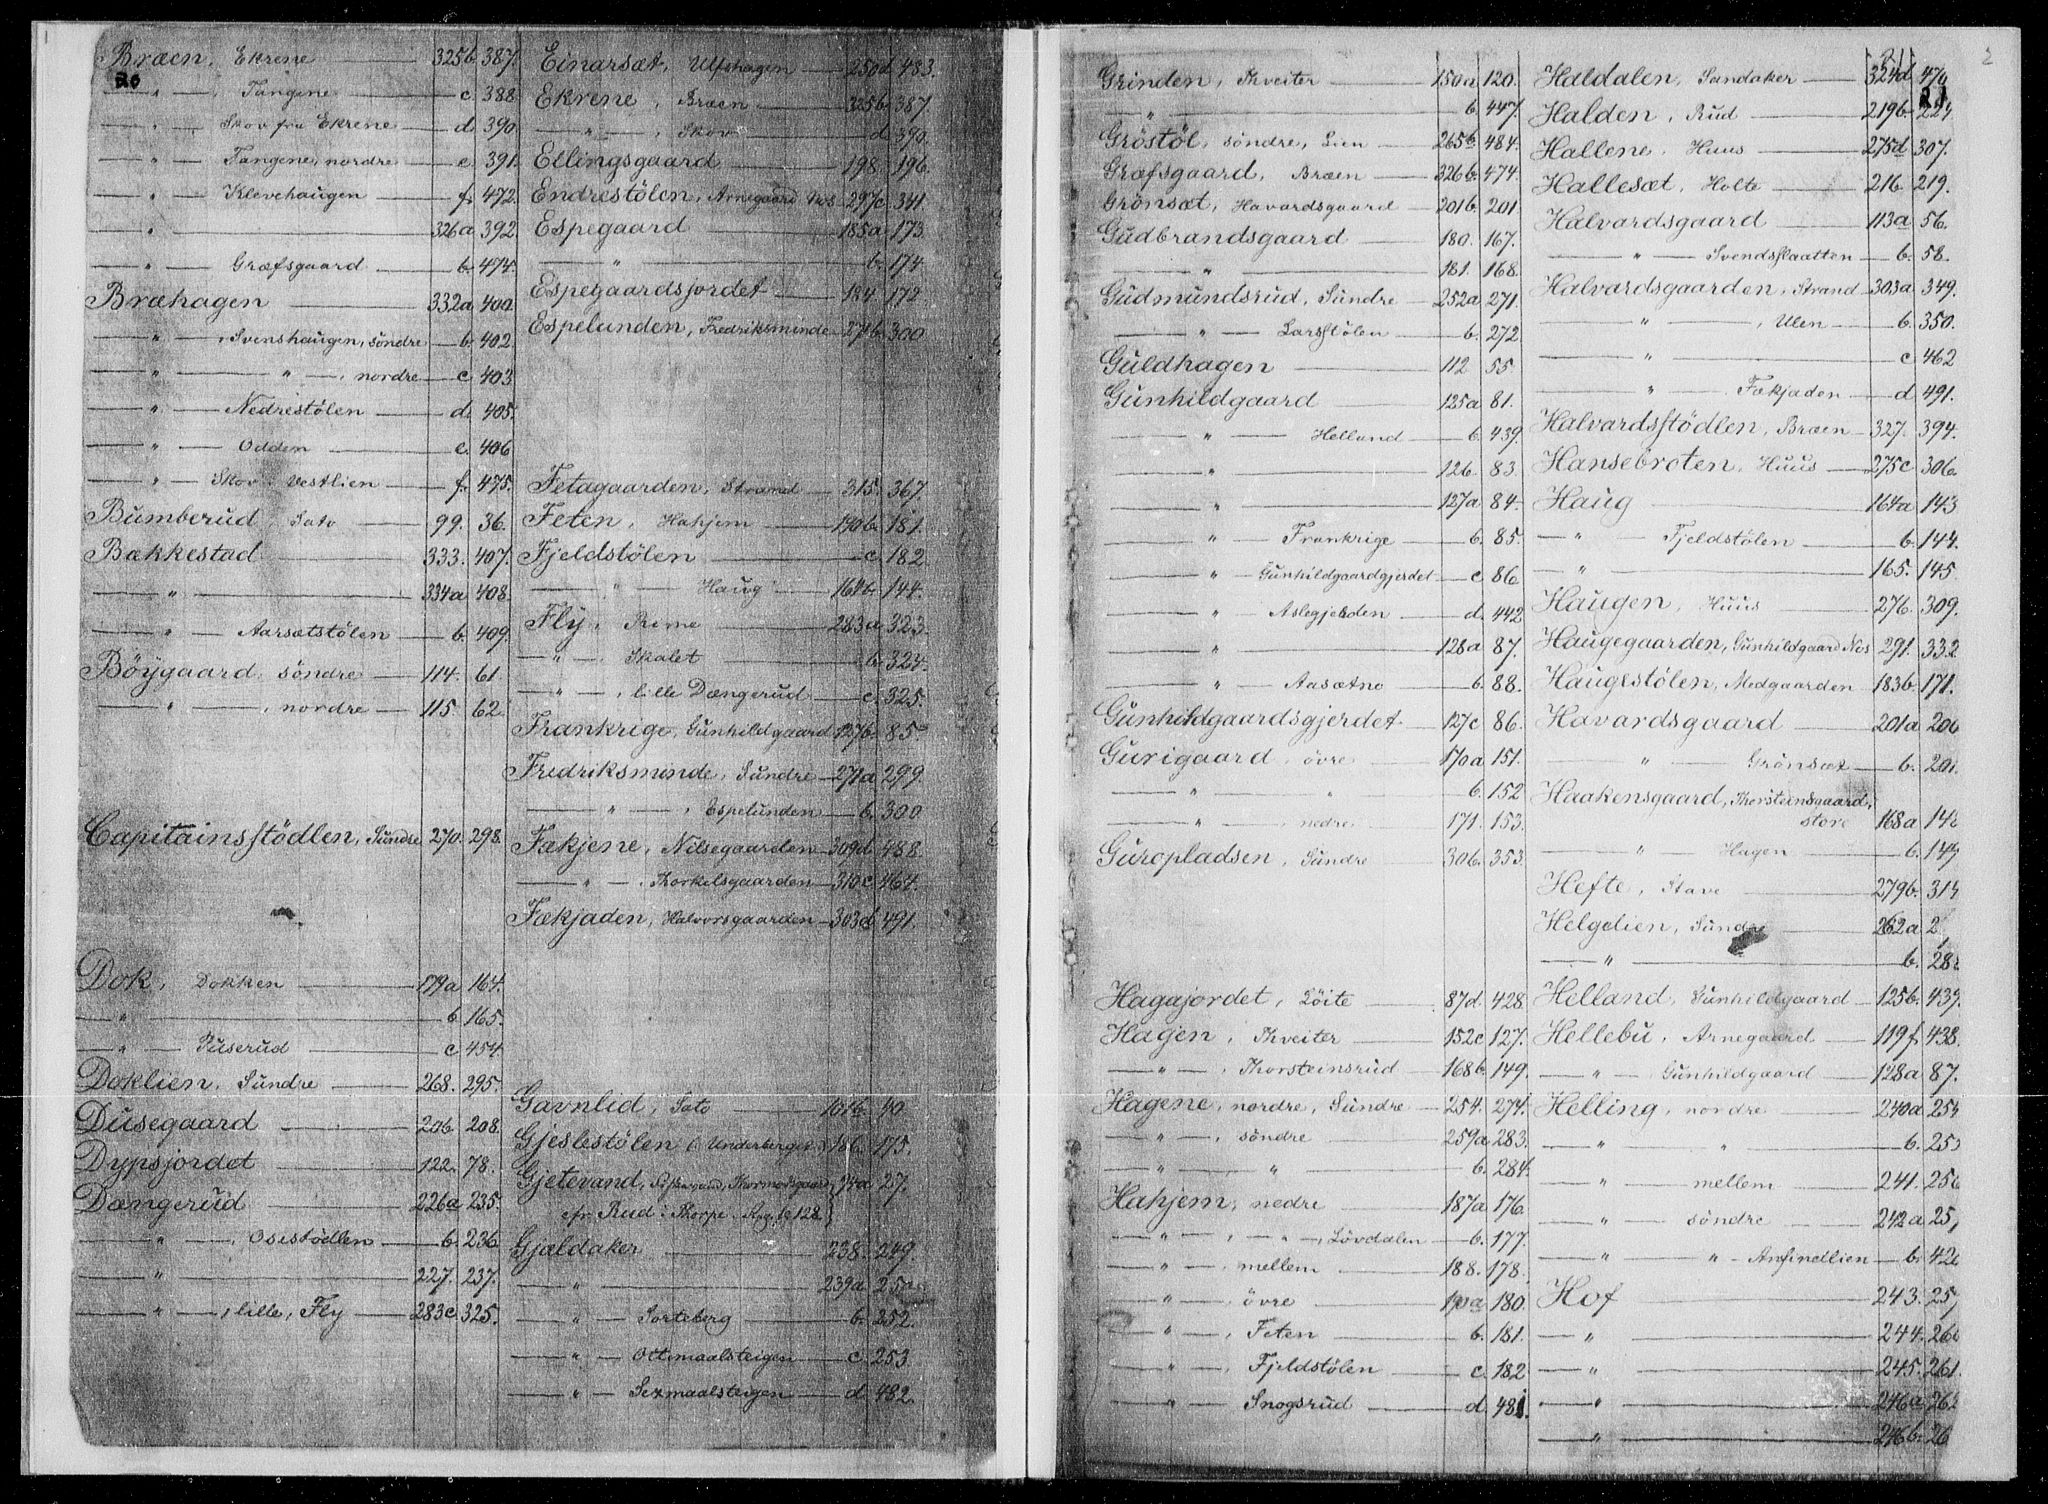 Bræen, Ekrene 325b. 387.
20
" , Tangene c. 388
" , Skov fra Ekrene d. 390.
" Tangene, nordre e. 391.
" , Klevehaugen f. 472.
" 326a 392
" Græfsgaard b. 474.
Bræhagen 332a 400.
" , Svenshaugen, söndre b. 402
" " , nordre c. 403
" Nedrestölen d. 405.
" Odden e. 406
" Skov i Vestlien f. 475.
Bumberud, Sato 99. 36.
Bækkestad 333. 407.
" 334a 408.
" Aarsætstölen b. 409.
Böygaard, söndre 114. 61.
" , nordre 115. 62.
Capitainsstödlen, Sundre 270. 298.
Dok, Dokken 179a 164.
" b. 165.
" Tuserud c. 454
Doklien, Sundre 268. 295.
Dusegaard 206 208.
Dypsjordet 122. 78.
Dængerud 226a 235.
" , Osestödlen b. 236
" 227. 237.
" , lille, Fly 283c 325.
Einarsæt, Ulfshagen 250d 483.
Ekrene, Bræen 325b. 387
" , Skov d. 390.
Ellingsgaard 198. 196.
Endrestölen, Arnegaard Nos 297c 341
Espegaard 185a 173
" b. 174
Espegaardsjordet 184 172
Espelunden, Fredriksminde 271b. 300
Fetagaarden, Strand 315. 367.
Feten, Hahjem 190b. 181.
Fjeldstölen c. 182
" Haug 164b. 144.
Fly, Reme 283a 323.
" , Skalet b. 324.
" , lille Dængerud c. 325.
Frankrige, Gunhildgaard 127b. 85.
Fredriksminde, Sundre 271a 299.
" , Espelunden b. 300
Fækjene, Nilsegaarden 309d 488.
" , Thorkelsgaarden 310c 464.
Fækjaden, Halvorsgaarden 303d 491.
Gavnlid, Sato 101b. 40
Gjeslestölen (Underberget) 186. 175.
Gjetevand, Thormodsgaard 94a 27.
cfr. Rud i Thorpe 128
Gjældaker 238. 249.
" 239a
" Sorteberg b. 252.
" Ottemaalsteigen c. 253
" Sexmaalsteigen d. 482.
Grinden, Thveiter 150a 120.
" b. 447.
Gröstöl, söndre, Lien 265b. 484.
Græfsgaard, Bræen 326b. 474.
Grönsæt, Havardsgaard 201b. 201
Gudbrandsgaard 180. 167.
" 181. 168.
Gudmundsrud, Sundre 252a 271.
" Larsstölen b. 272
Guldhagen 112 55
Gunhildgaard 125a 81.
" Helland b. 439.
" 126. 83.
" 127a 84.
" Frankrige b. 85.
" Gunhildgaardgjerdet c. 86.
" Aslegjerden d. 442
" 128a 87.
" Aasætno b. 88.
Gunhildgaardsgjerdet 127c 86.
Gurigaard, övre 170a 151.
" " b. 152
" nedre 171. 153.
Guropladsen, Sundre 306. 353.
Hagajordet, Löite 87d. 428.
Hagen, Thveiter 152c 127.
" , Thorsteinsrud 168b. 149.
Hagene, nordre, Sundre 254. 274.
" , söndre 259a 283.
" " b. 284.
Hahjem, nedre 187a 176.
" , " , Lövdalen b. 177.
" , mellem 188. 178.
" , övre 190a 180.
" , Feten b. 181.
" , Fjeldstölen c. 182
" Snogsrud d. 481.
21
2
Haldalen, Sandaker 324d 476
21
Halden, Rud 219b. 224
Hallene, Huus 275d 307.
Hallesæt, Holte 216. 219.
Halvardsgaard 113a 56.
" Svendsflaatten b. 58.
Halvardsgaarden, Strand 303a 349.
" , Ulen b. 350.
" c 462
" Fækjaden d 491.
Halvardsstödlen, Bræen 327. 394.
Hansebroten, Huus 275c 306.
Haug 164a 143
" Fjeldstölen b. 144.
" 165. 145.
Haugen, Huus 276. 309.
Haugegaarden, Gunhildgaard Nos 291. 332
Haugestölen, Medgaarden 183b. 171.
Havardsgaard 201a 200
" Grönsæt b. 201.
Haakensgaard, Thorsteinsgaard,
store 168a 148
" Hagen b. 149
Hefte, Stave 279b. 314
Helgelien, Sundre 262a 2
" b. 288
Helland, Gunhildgaard 125b. 439.
Hellebu, Arnegaard 119f 438.
" Gunhildgaard 128a 87.
Helling, nordre 240a 254
" " b. 25
" mellem 241. 256
" söndre 242a 25
" " Anfindlien b. 426
Hof 243. 25
" 244. 260
" 245. 261.
" 246a 262
" 246b. 26